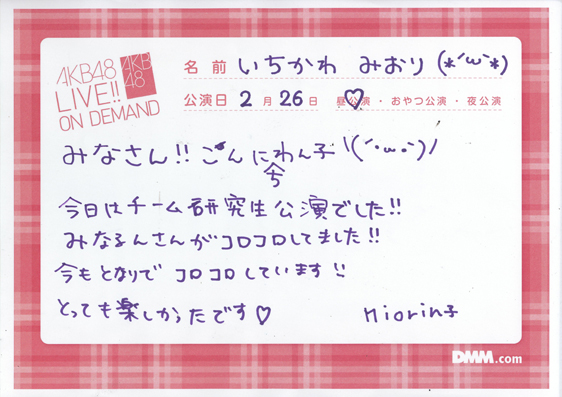 AKB48
LIVE!!
ON DEMAND
AKB
48
名前 いちかわ みおり (*´ω`*)
公演日 2月26日 昼公演・おやつ公演・夜公演
みなさん!! ごんにわん子 \(´・ω・`)/
ち
今日はチーム研究生公演でした!!
みなるんさんがコロコロしてました!!
今もとなりでコロコロしています!!
とっても楽しかったです♡
Miorin子
DMM.com